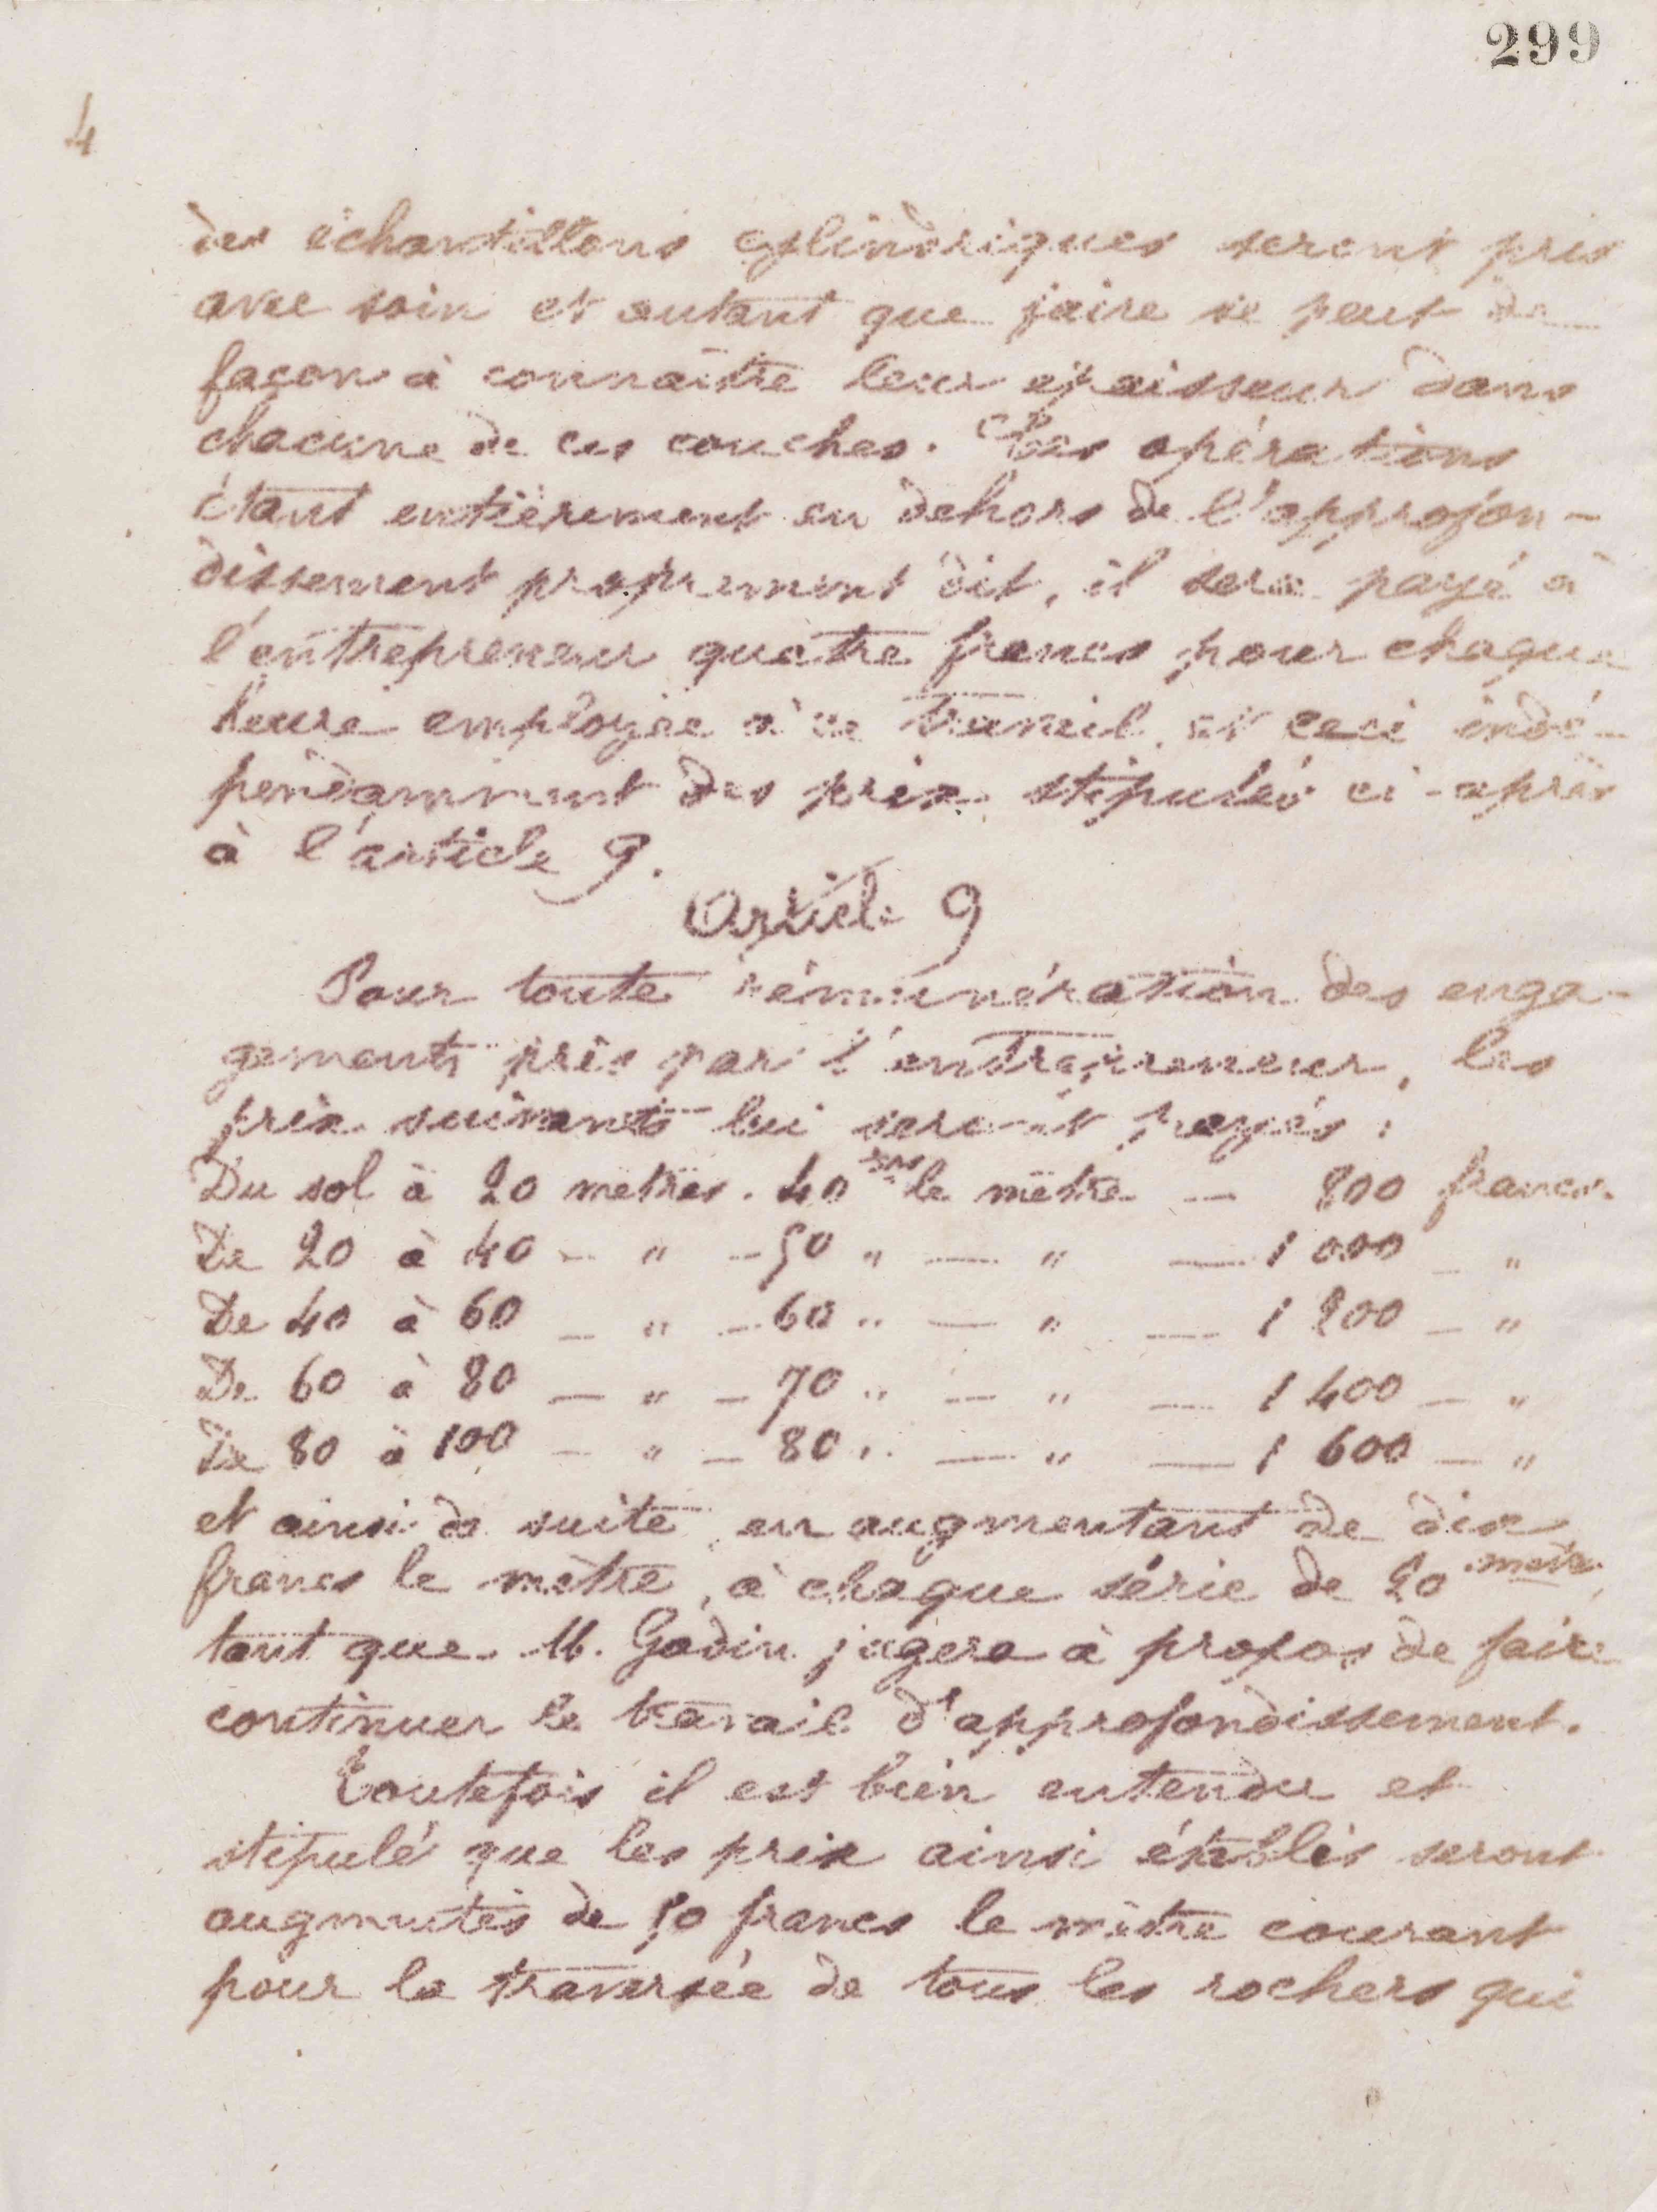 299
4
des échantillons cylindriques seront pris
avec soin et autant que faire se peut de
façon à connaître leur épaisseur dans
chacune de ces couches. Ces opérations
étant entièrement en dehors de l'approfon-
dissement proprement dit, il sera payé à
l'entrepreneur quatre francs pour chaque
heure employée à ce travail, et ceci indé-
pendamment des prix stipulés ci-après
à l'article 9.
Article 9
Pour toute rémunération des enga-
gements pris par l'entrepreneur, les
prix suivants lui seront payés :
Du sol à 20 mètres. 40 frs le mètre — 800 francs.
De 20 à 40 — " — 50 " — " — 1 000 — "
De 40 à 60 — " — 60 " — " — 1 200 — "
De 60 à 80 — " — 70 " — " — 1 400 — "
De 80 à 100 — " — 80 " — " — 1 600 — "
et ainsi de suite en augmentant de dix
francs le mètre, à chaque série de 20
tant que M. Godin jugera à propos de faire
continuer le travail d'approfondissement.
Toutefois il est bien entendu et
stipulé que les prix ainsi établis seront
augmentés de francs le mètre courant
pour la traversée de tous les rochers qui